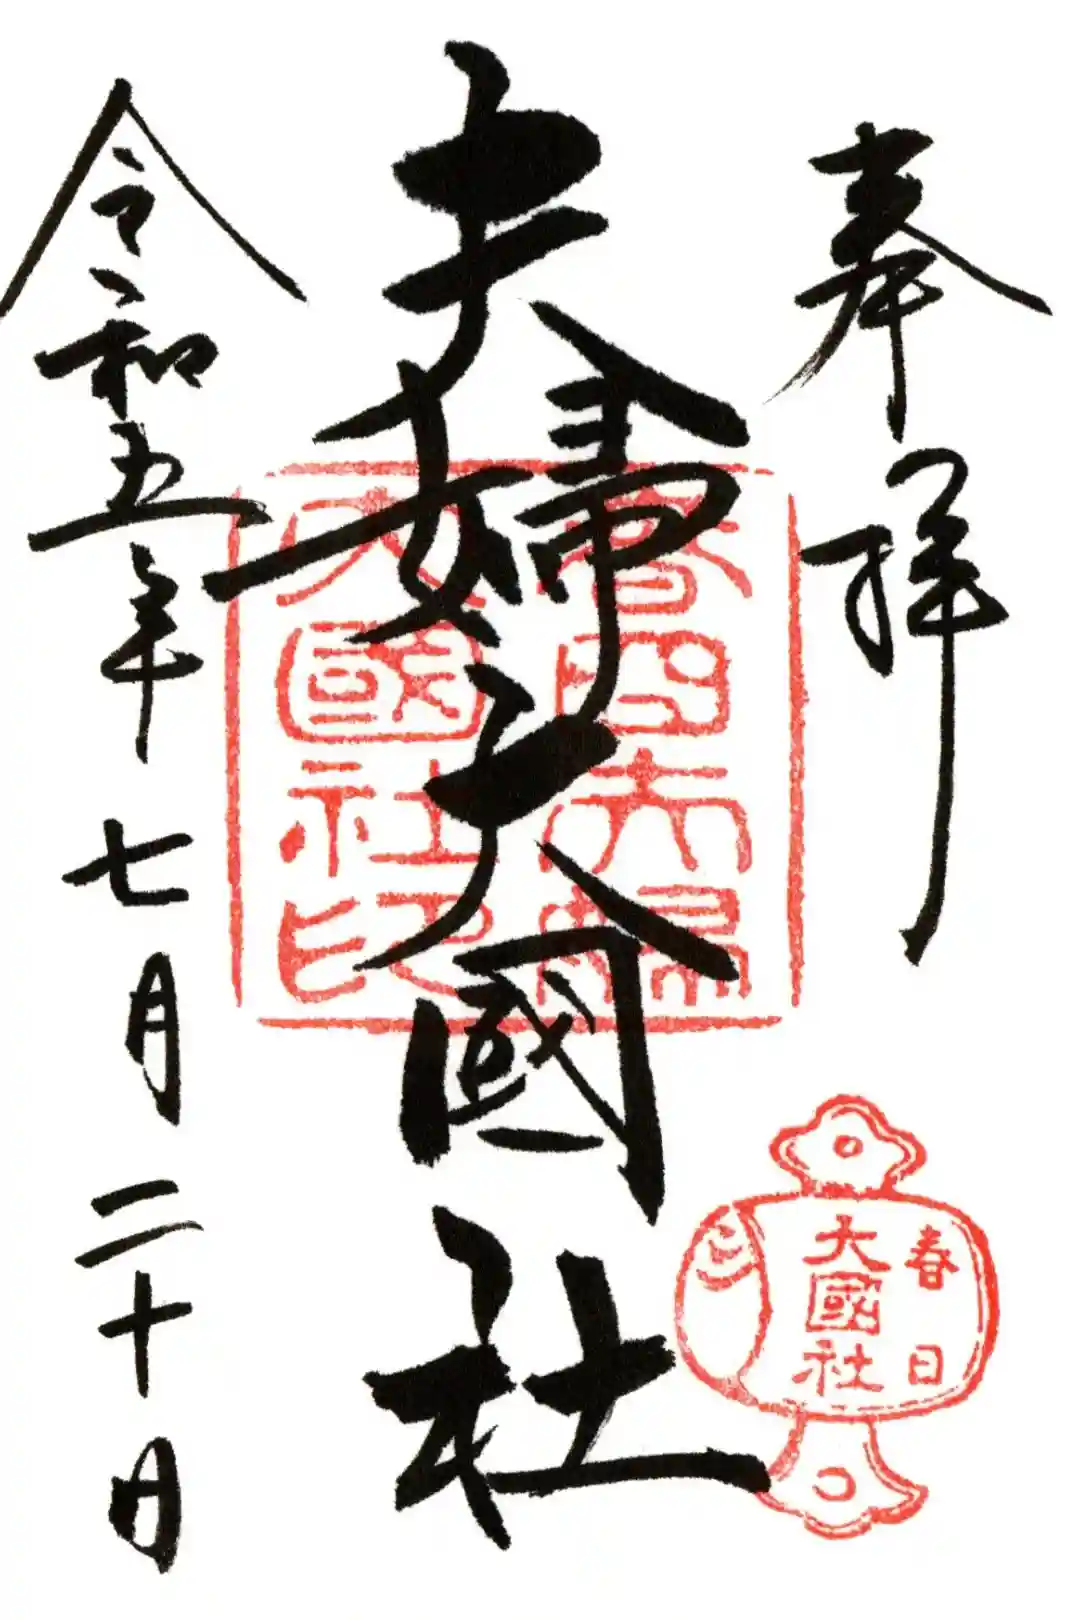 奉拝
夫婦大國社
令和五年七月二十日
春日大社
大國社印
春日
大國社